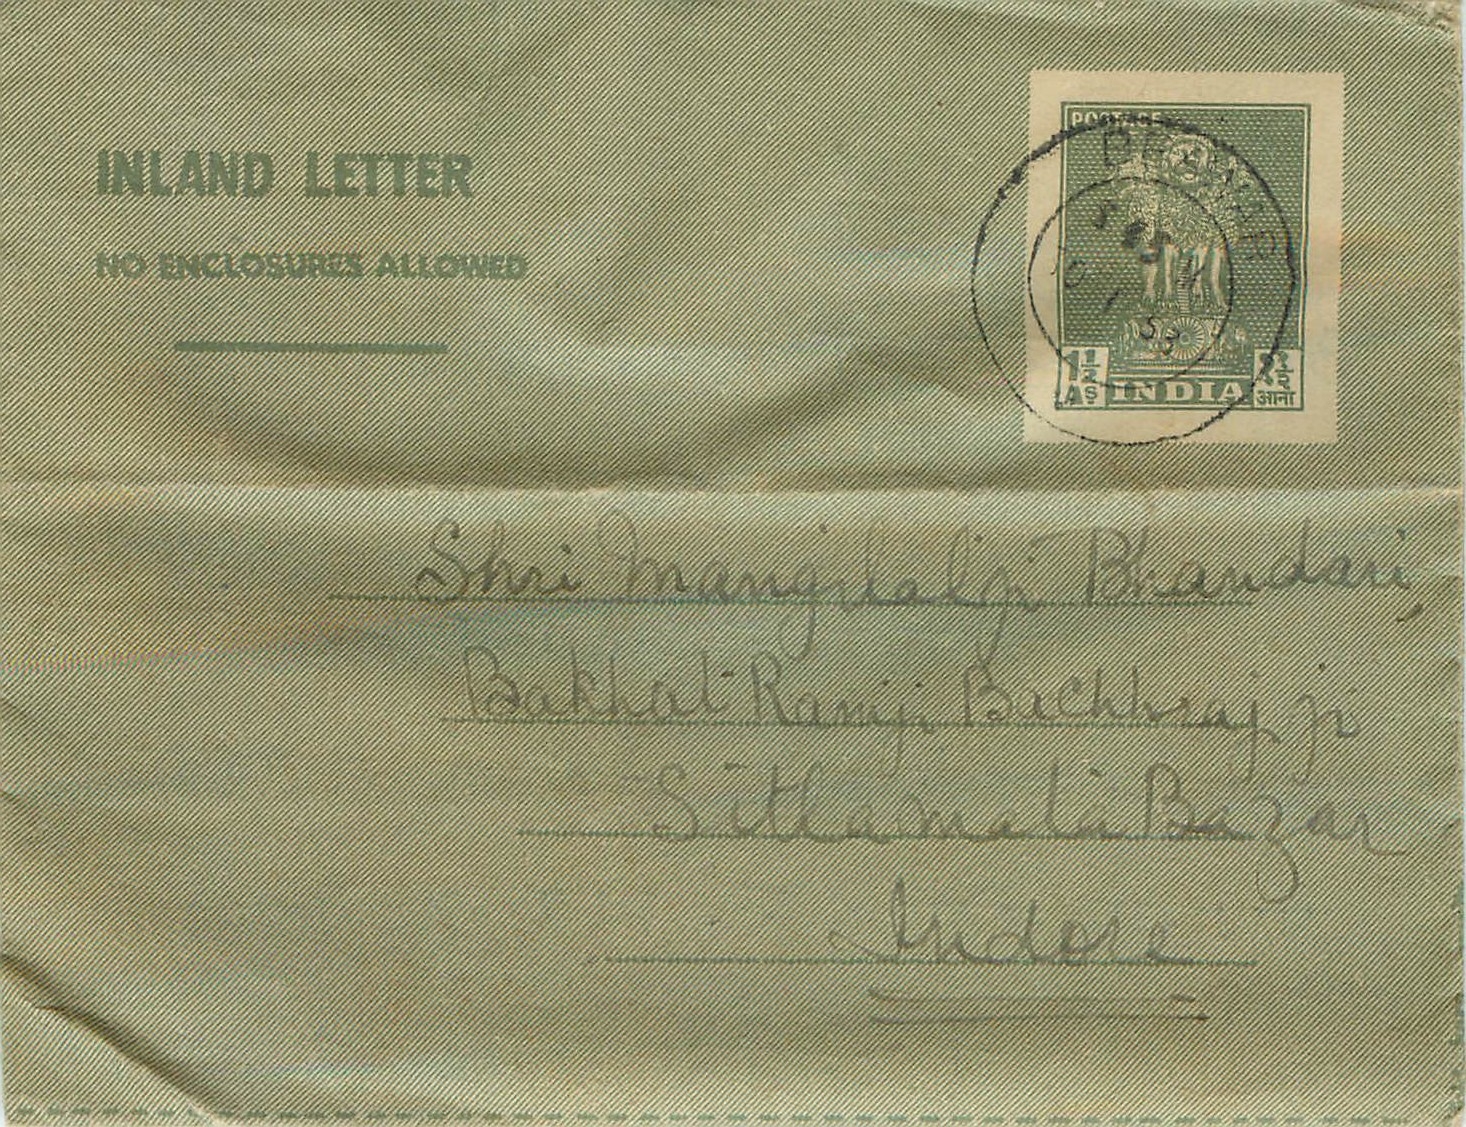 INLAND LETTER
NO ENCLOSURES ALLOWED
POSTAGE
1½ AS INDIA १½ आना
53
Shri Mangilalji Bhandari,
Bakhat Ramji Bachhrajji
Sitlamata Bazar
Indore